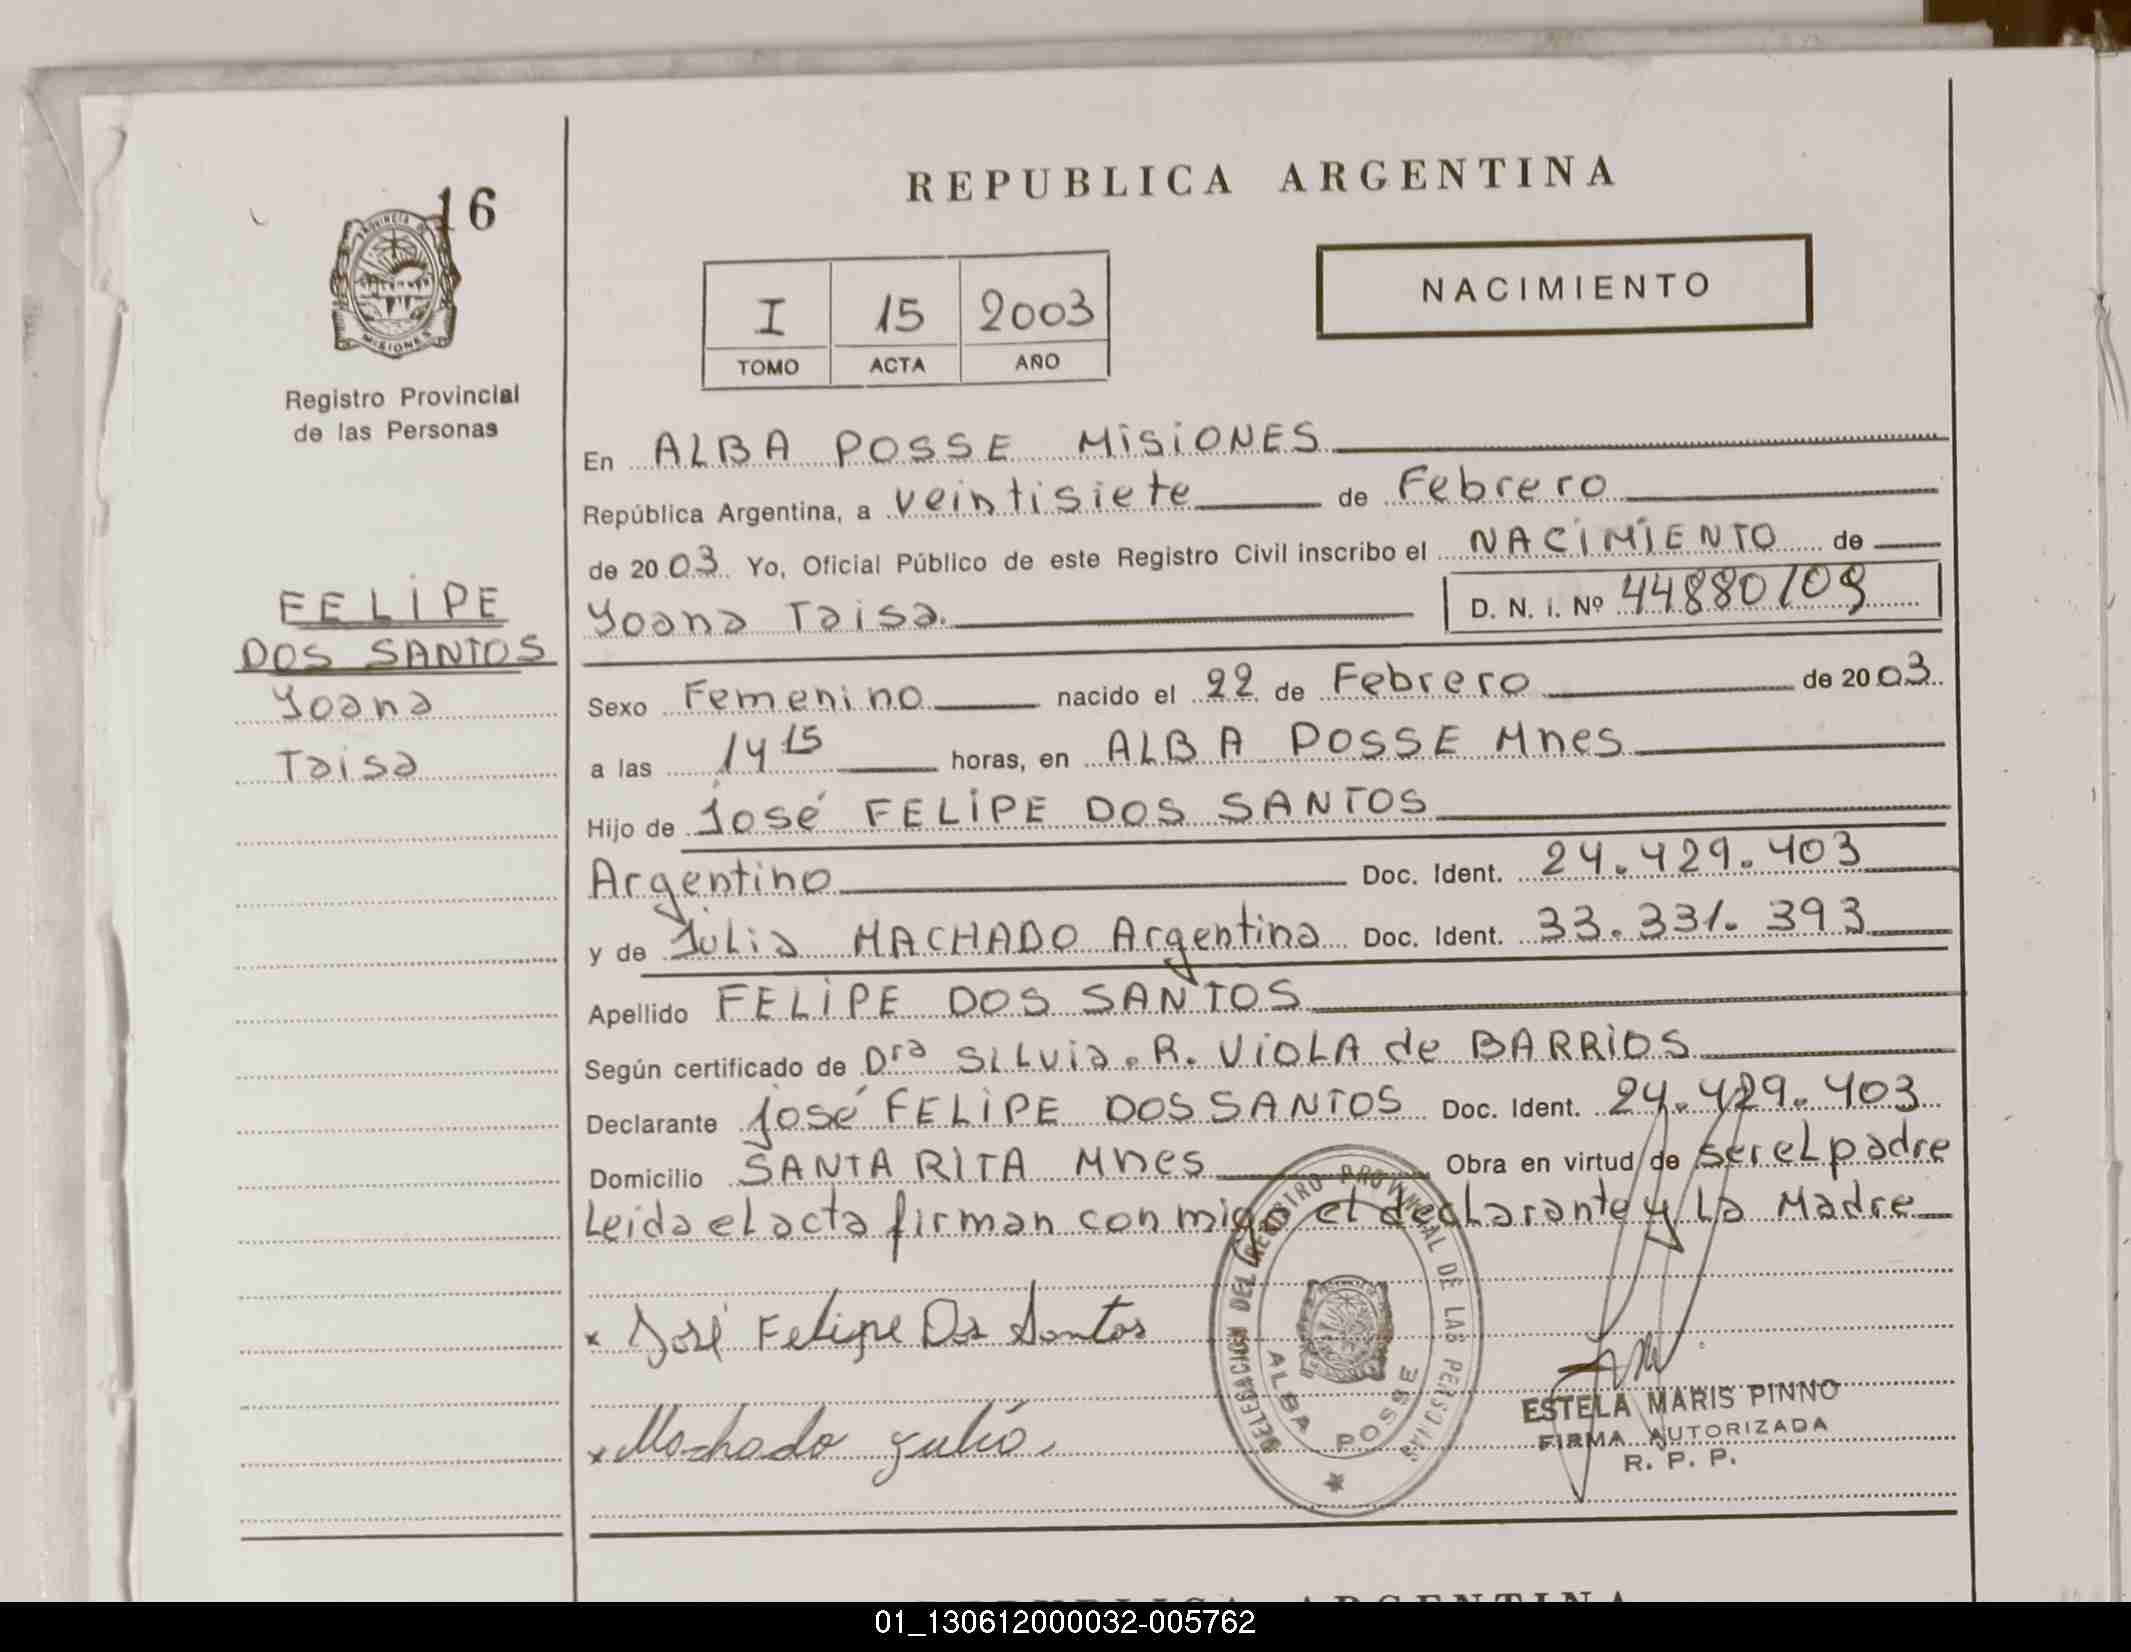 16
PROVINCIA DE
MISIONES
Registro Provincial
de las Personas
FELIPE
DOS SANTOS
Yoana
Taisa
REPUBLICA ARGENTINA
I 15 2003
TOMO ACTA AÑO
NACIMIENTO
En ALBA POSSE MISIONES
República Argentina, a veintisiete de Febrero
de 2003. Yo, Oficial Público de este Registro Civil inscribo el NACIMIENTO de
Yoana Taisa. D. N. I. Nº 44880109
Sexo Femenino nacido el 22 de Febrero de 2003
a las 14 15 horas, en ALBA POSSE Mnes
Hijo de José FELIPE DOS SANTOS
Argentino Doc. Ident. 24.429.403
y de Julia MACHADO Argentina Doc. Ident. 33.331.393
Apellido FELIPE DOS SANTOS
Según certificado de Dra SILvia. R. VIOLA de BARRIOS
Declarante José FELIPE DOS SANTOS Doc. Ident. 24.429.403
Domicilio SANTA RITA Mnes Obra en virtud de ser el padre
Leida el acta firman conmigo el declarante y La Madre
x José Felipe Dos Santos
x Machado Julia.
DELEGACION DEL REGISTRO PROVINCIAL DE LAS PERSONAS
ALBA POSSE
ESTELA MARIS PINNO
FIRMA AUTORIZADA
R. P. P.
REPUBLICA ARGENTINA
01_130612000032-005762